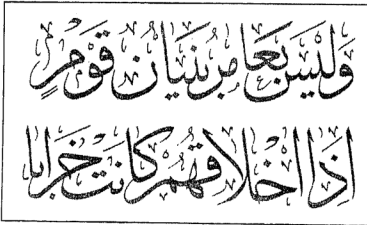 وَلَيْسَ بِعَامِرٍ بُنْيَانُ قَوْمٍ
إِذَا أَخْلَاقُهُمْ كَانَتْ خَرَابًا